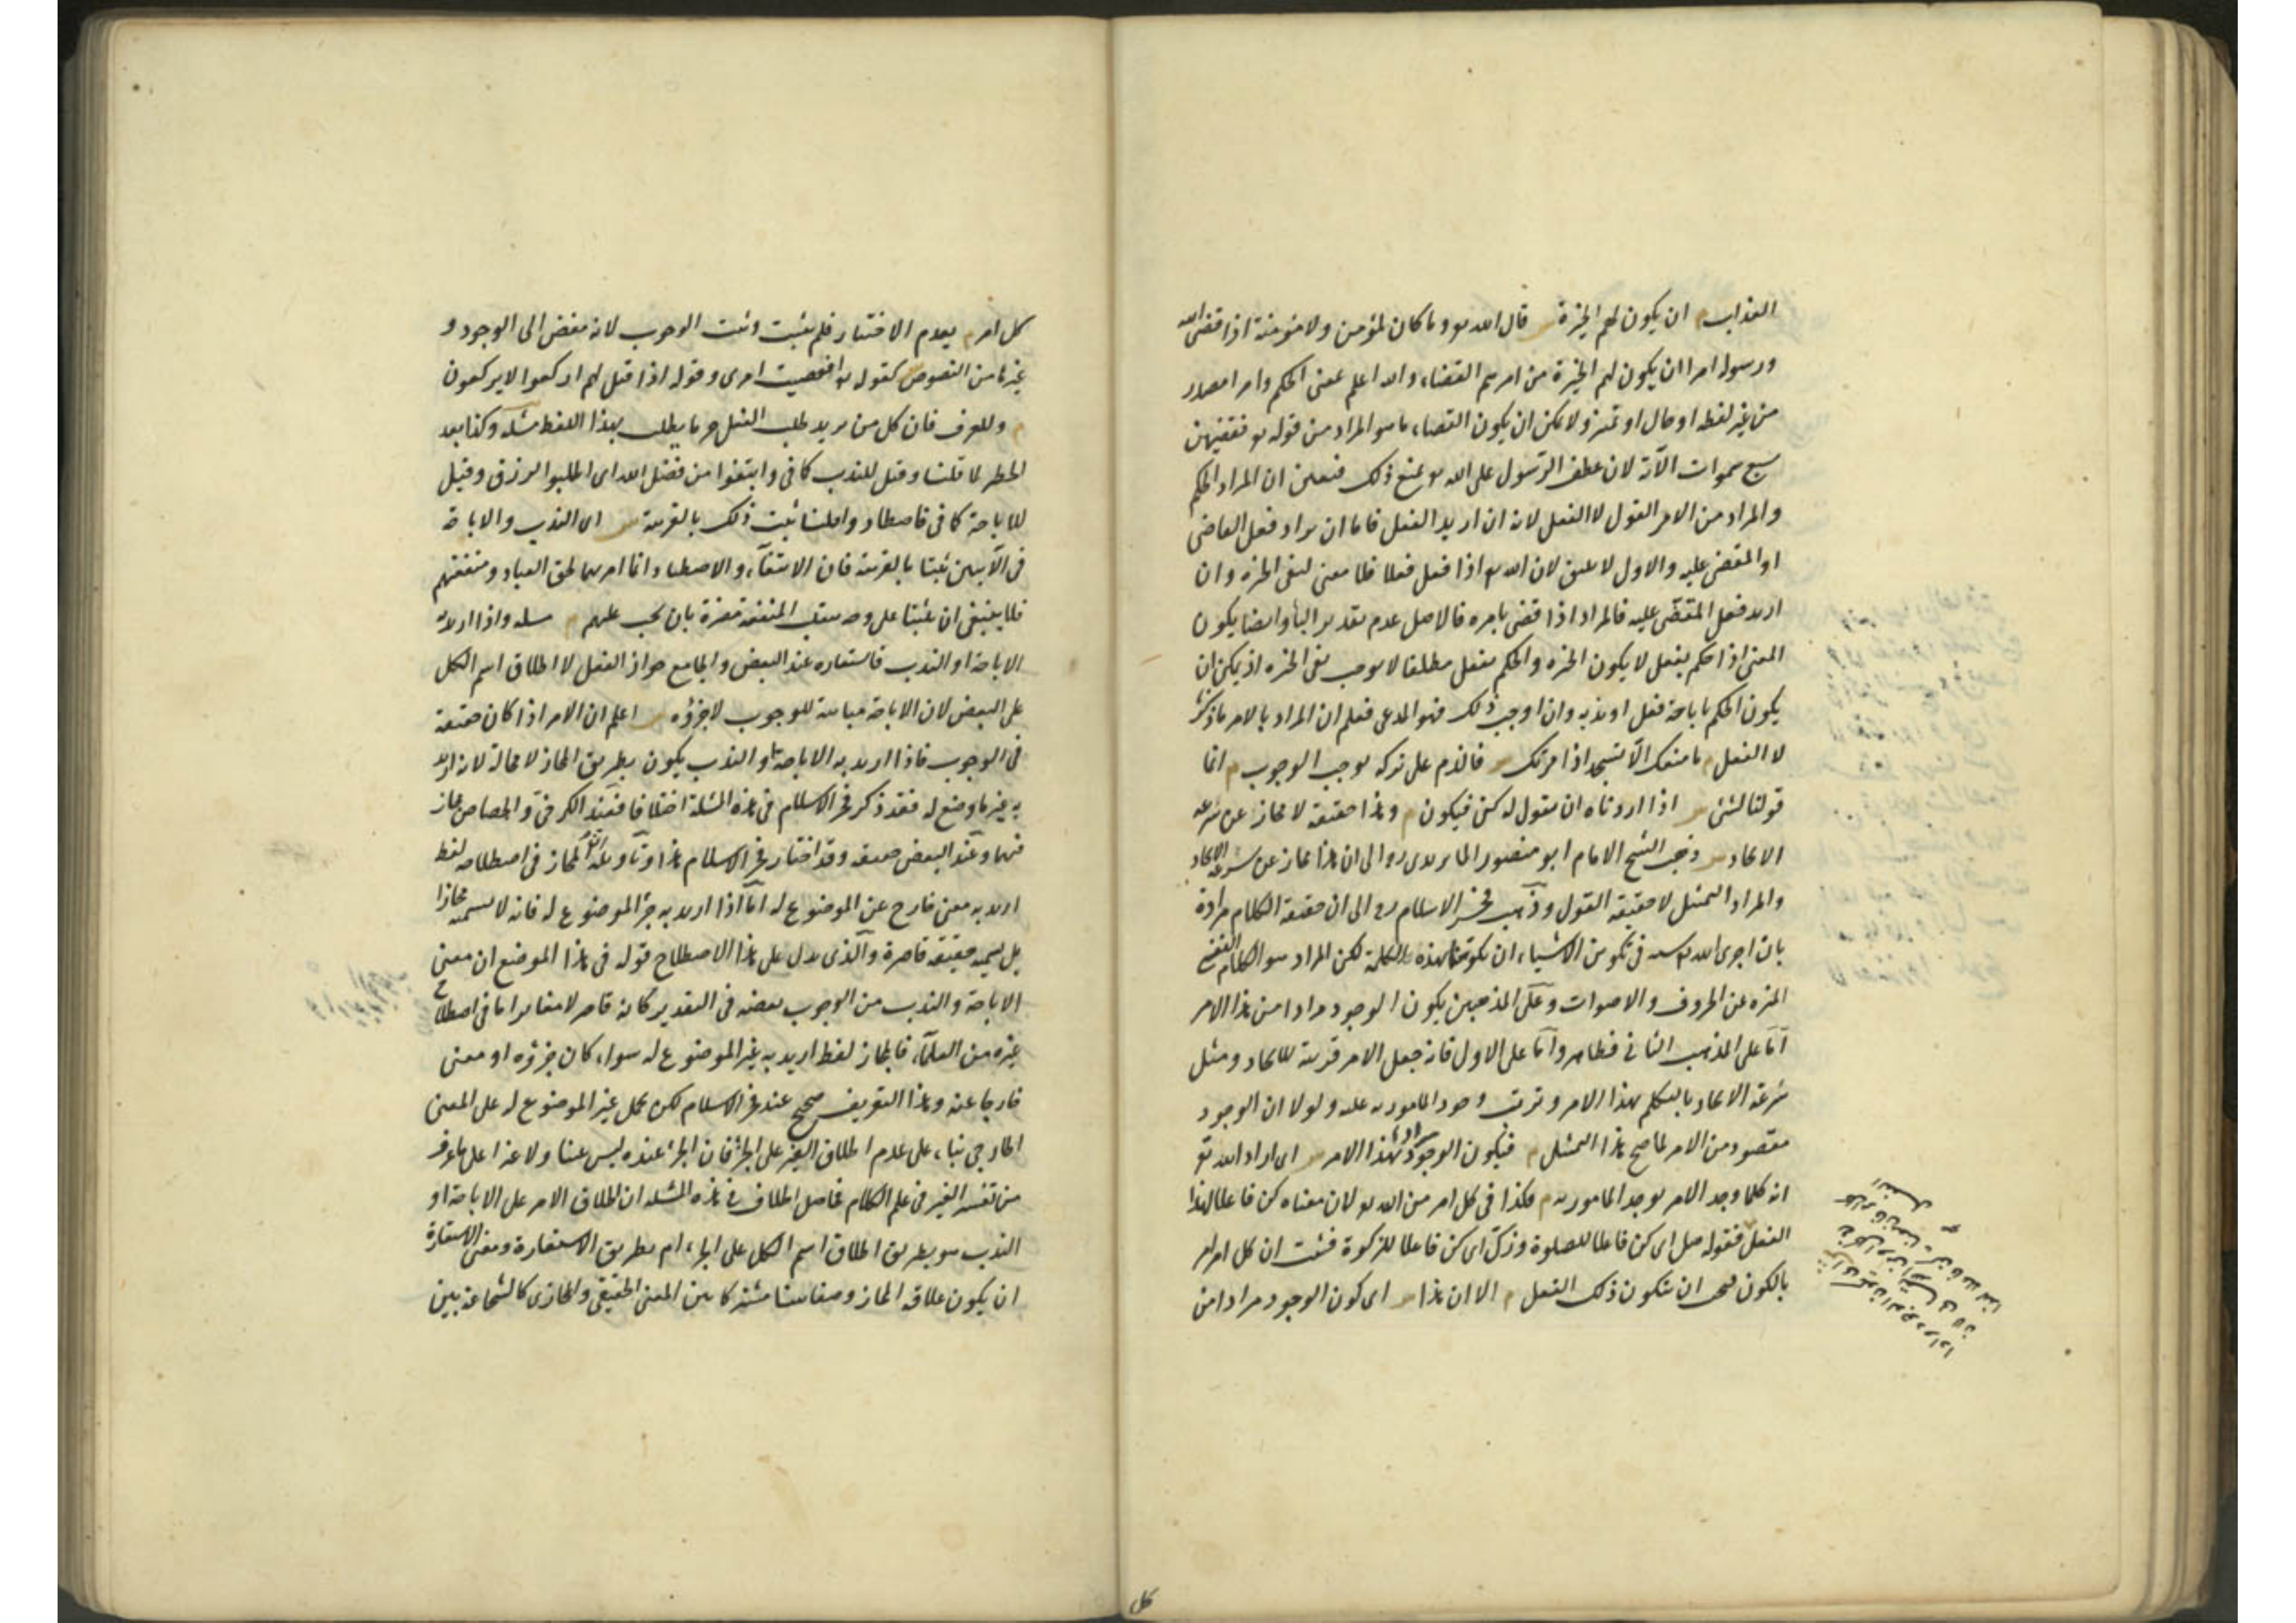 العذاب م ان يكون لهم الخيرة س قال الله تع وما كان لمؤمن ولا مؤمنة اذا قضى الله
ورسوله امرا ان يكون لهم الخيرة من امرهم القضاء والله اعلم بمعنى الحكم وامرا مصدر
من غير لفظه او حال او تميز ولا يمكن ان يكون القضاء ما هو المراد من قوله تع فقضيهن
سبع سموات الآية لان عطف الرسول على الله تع يمنع ذلك فتعين ان المراد الحكم
والمراد من الامر القول لا الفعل لانه ان اريد الفعل فاما ان يراد فعل القاضى
او المقضى عليه والاول لا يليق لان الله تع اذا فعل فعلا فلا معنى لنفى الخيرة وان
اريد فعل المقضى عليه فالمراد اذا قضى بامره فالاصل عدم تقدير الباء وايضا يكون
المعنى اذا حكم بفعل لا يكون الخيرة والحكم بفعل مطلقا لا يوجب نفى الخيرة اذ يمكن ان
يكون الحكم باباحة فعل او ندبه وان اوجب ذلك فهو المدعى فعلم ان المراد بالامر ما ذكرنا
لا الفعل م ما منعك الا تسجد اذ امرتك س فالذم على تركه يوجب الوجوب م انما
قولنا لشئ س اذا اردناه ان نقول له كن فيكون م وهذا حقيقة لا مجاز عن سرعة
الايجاد س ذهب الشيخ الامام ابو منصور الماتريدى رح الى ان هذا مجاز عن سرعة الايجاد
والمراد التمثيل لا حقيقة القول وذهب فخر الاسلام رح الى ان حقيقة الكلام مرادة
بان اجرى الله تع سنته فى تكوين الاشياء ان يكونها بهذه الكلمة لكن المراد هو الكلام النفسى
المنزه عن الحروف والاصوات وعلى المذهبين يكون الوجود مرادا من هذا الامر
اما على المذهب الثانى فظاهر واما على الاول فانه جعل الامر قرينة للايجاد ومثل
سرعة الايجاد بالتكلم بهذا الامر وترتب وجود المامور به عليه ولولا ان الوجود
مقصود من الامر لما صح هذا التمثيل م فيكون الوجود مرادا بهذا الامر س اى اراد الله تع
انه كلما وجد الامر يوجد المامور به م فكذا فى كل امر من الله تع لان معناه كن فاعلا لهذا
الفعل فقوله صل اى كن فاعلا للصلوة وزك اى كن فاعلا للزكوة فثبت ان كل امر امر
بالكون فيجب ان يتكون ذلك الفعل م الا ان هذا س اى كون الوجود مرادا من
كل
كل امر م يعدم الاختيار فلم يثبت وثبت الوجوب لانه مفض الى الوجود و
غيرها من النصوص كقوله تع افعصيت امرى وقوله اذا قيل لهم اركعوا لا يركعون
م وللعرف فان كل من يريد طلب الفعل جزما يطلب بهذا اللفظ مسئلة وكذا بعد
الحظر لما قلنا وقيل للندب كما فى وابتغوا من فضل الله اى اطلبوا الرزق وقيل
للاباحة كما فى فاصطادوا قلنا ثبت ذلك بالقرينة س اى الندب والاباحة
فى الآيتين ثبتا بالقرينة فان الابتغاء والاصطياد انما امر بهما لحق العباد ومنفعتهم
فلا ينبغى ان يثبتا على وجه تنقلب المنفعة مضرة بان يجب عليهم م مسئلة واذا اريد به
الاباحة او الندب فاستعارة عند البعض والجامع جواز الفعل لا اطلاق اسم الكل
على البعض لان الاباحة مباينة للوجوب لا جزؤه س اعلم ان الامر اذا كان حقيقة
فى الوجوب فاذا اريد به الاباحة او الندب يكون بطريق المجاز لا محالة لانه اريد
به غير ما وضع له فقد ذكر فخر الاسلام فى هذه المسئلة اختلافا فعند الكرخى والجصاص مجاز
فيهما وعند البعض حقيقة وقد اختار فخر الاسلام هذا وتاويله ان المجاز فى اصطلاحه لفظ
اريد به معنى خارج عن الموضوع له اما اذا اريد به جزء الموضوع له فانه لا يسميه مجازا
بل يسميه حقيقة قاصرة والذى يدل على هذا الاصطلاح قوله فى هذا الموضع ان معنى
الاباحة والندب من الوجوب بعضه فى التقدير كانه قاصر لا مغاير اما فى اصطلاح
غيره من العلماء فالمجاز لفظ اريد به غير الموضوع له سواء كان جزؤه او معنى
خارجا عنه وهذا التعريف صحيح عند فخر الاسلام لكن يحمل غير الموضوع له على المعنى
الخارجى بناء على عدم اطلاق الغير على الجزء فان الجزء عنده ليس عينا ولا غيرا على ما عرف
من تفسير الغير فى علم الكلام فحاصل الخلاف فى هذه المسئلة ان اطلاق الامر على الاباحة او
الندب هو بطريق اطلاق اسم الكل على الجزء ام بطريق الاستعارة ومعنى الاستعارة
ان يكون علاقة المجاز وصفا بينا مشتركا بين المعنى الحقيقى والمجازى كالشجاعة بين